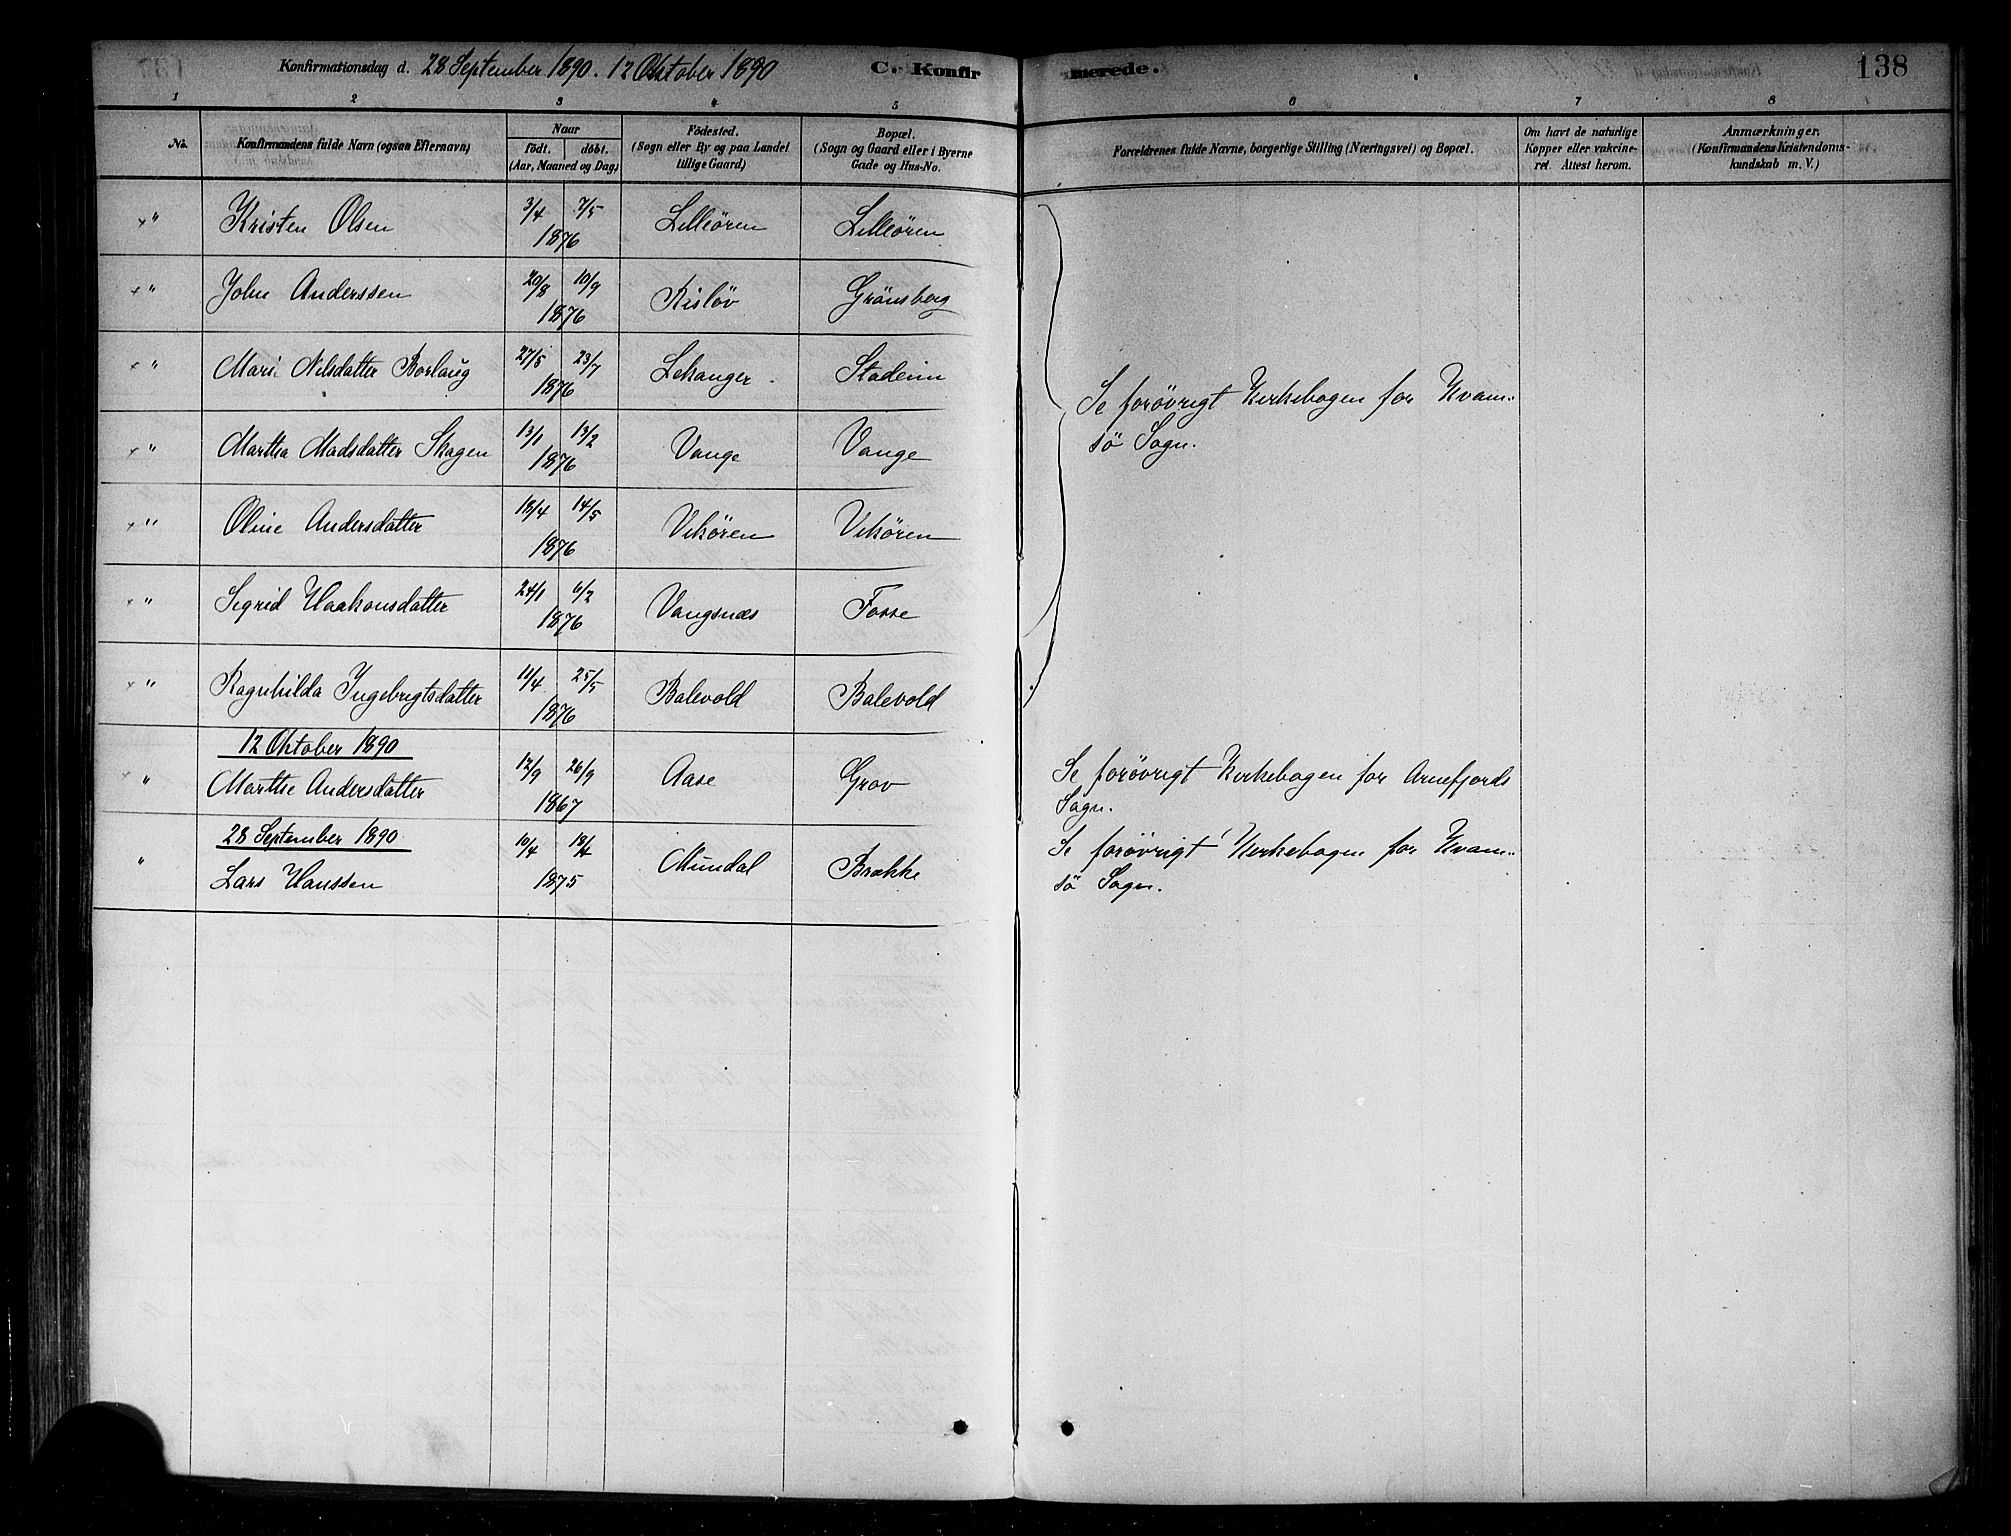 Konfirmationsdag d. 28 September 1890. 12 Oktober 1890 C. Konfirmerede. 138
1 2 3 4 5 6 7 8
No. Konfirmandens fulde Navn (ogsaa Efternavn) Naar Födt. döbt. (Aar, Maaned og Dag) Födested. (Sogn eller By og paa Landet tillige Gaard) Bopæl. (Sogn og Gaard eller i Byerne Gade og Hus-No. Forældrenes fulde Navne, borgerlige Stilling (Næringsvei) og Bopæl. Om havt de naturlige Kopper eller vakcineret. Attest herom. Anmærkninger. (Konfirmandens Kristendomskundskab m. V.)
" Kristen Olsen 3/4 7/5 1876 Lilleören Lilleören
" John Anderssen 20/8 10/9 1876 Risløv Grönsberg
" Mari Nilsdatter Borlaug 27/5 23/7 1876 Lekanger Stadeim
Se forøvrigt Kirkebogen for Kvam-
sö Sogn.
" Martha Madsdatter Skagen 13/1 13/2 1876 Vange Vange
" Oline Andersdatter 18/4 14/5 1876 Viköre​n Vikören
" Sigrid Haakonsdatter 24/1 6/2 1876 Vangsnæs Fosse
" Ragnhilda Ingebrigtsdatter 11/4 25/5 1876 Balevold Balevold
12 Oktober 1890
" Marthe Andersdatter 12/9 26/9 1867 Aase Grov Se forøvrigt Kirkebogen for Arnefjords
Sogn.
28 September 1890
" Lars Hanssen 10/4 1875 Mundal Brække Se forøvrigt Kirkebogen for Kvam-
sö Sogn.